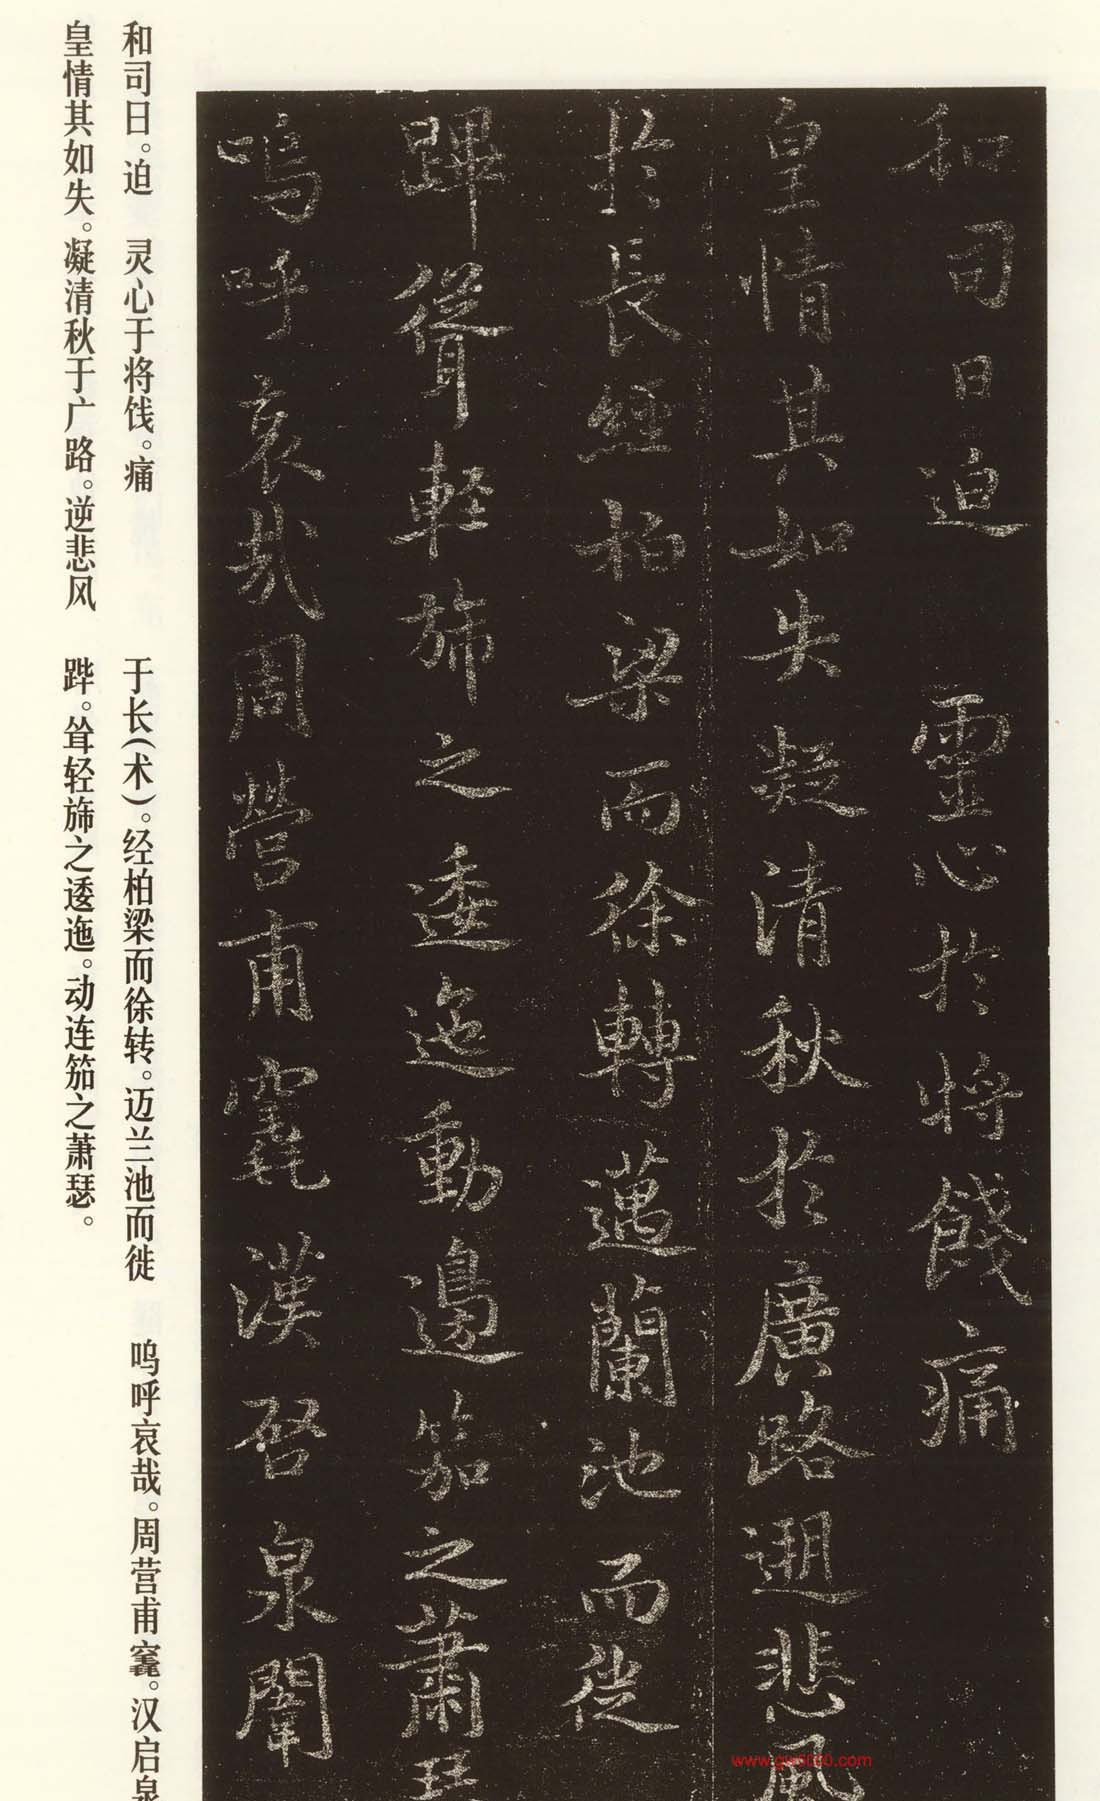 和司日迫　靈心於將餞痛
皇情其如失凝清秋於廣路逆悲風
於長經柏梁而徐轉邁蘭池而徙
蹕聳輕旆之逶迤動連笳之蕭瑟
嗚呼哀哉周營甫竁漢啓泉闈
和司日。迫　灵心于将饯。痛
皇情其如失。凝清秋于广路。逆悲风
于长(术)。经柏梁而徐转。迈兰池而徙
跸。耸轻旆之逶迤。动连笳之萧瑟。
呜呼哀哉。周营甫竁。汉启泉
www.gw8000.com